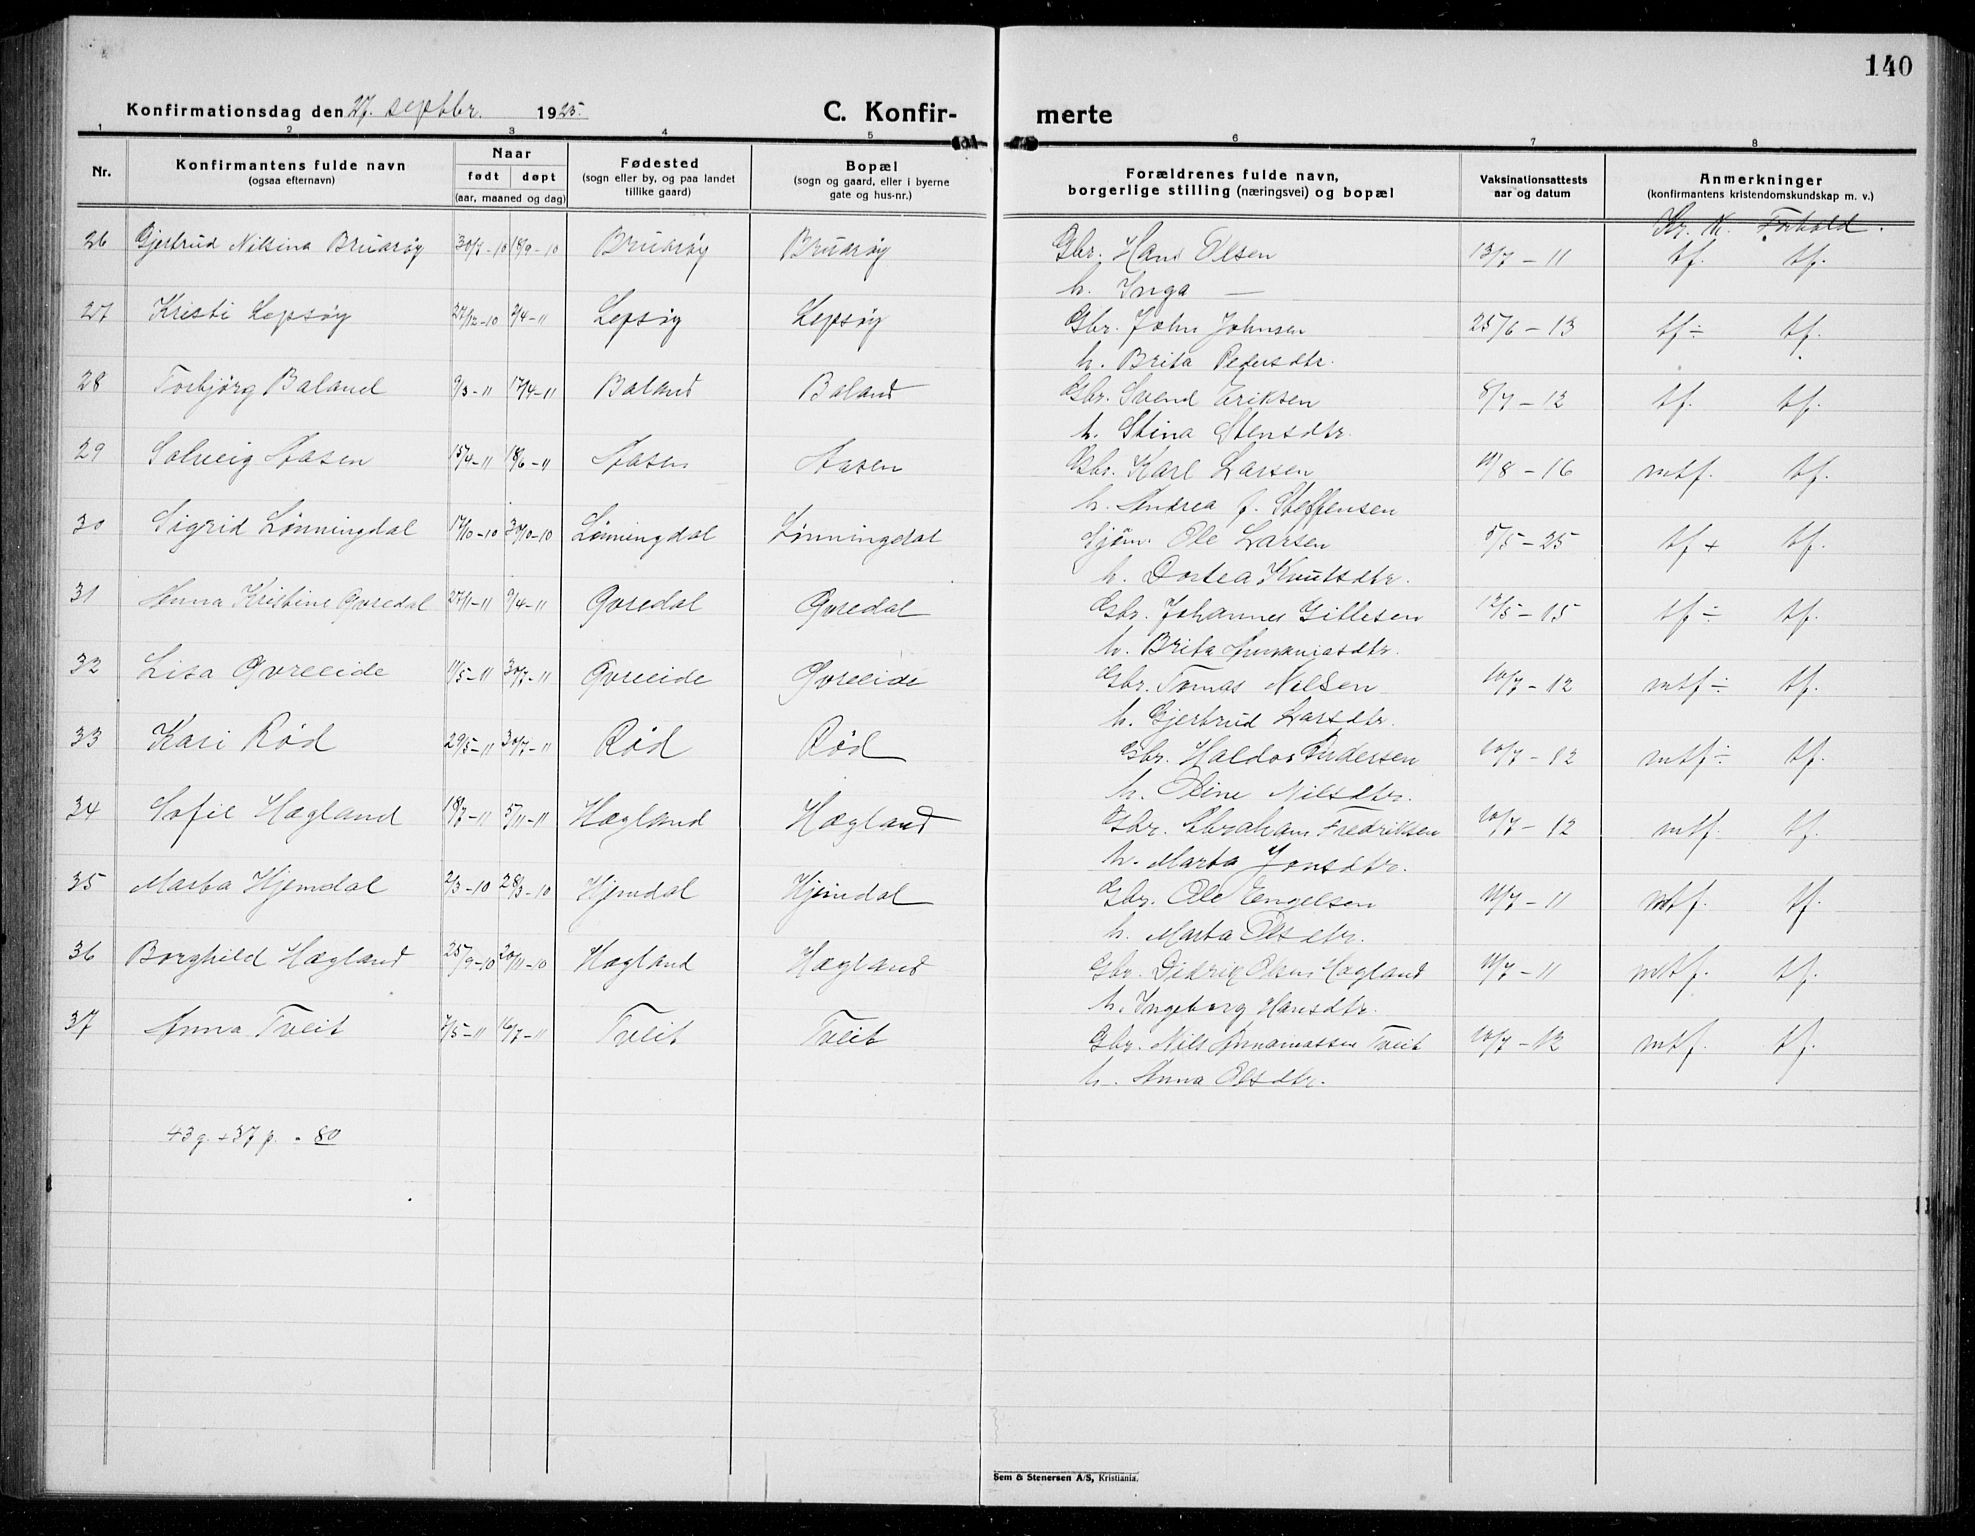 140
Konfirmationsdag den 27. septbr. 1925.
C. Konfir-
merte
1 2 3 4 5 6 7 8
Nr.
Konfirmantens fulde navn
(ogsaa efternavn)
Naar
født døpt
(aar, maaned og dag)
Fødested
(sogn eller by, og paa landet
tillike gaard)
Bopæl
(sogn og gaard, eller i byerne
gate og hus-nr.)
Forældrenes fulde navn,
borgerlige stilling (næringsvei) og bopæl
Vaksinationsattests
aar og datum
Anmerkninger
(konfirmantens kristendomskundskap m. v.)
Kr. K. Forhold.
26 Gjertrud Nilsina Bruarøy 18/9-10 Bruarøy Bruarøy Gbr. Hans Olsen 13/7-11 tf. tf.
h. Inga —
27 Kristi Lepsøy 27/12-10 9/4-11 Lepsøy Lepsøy Gbr. John Johnsen 25/6-13 tf÷ tf.
h. Brita Pedersdtr.
28 Torbjørg Baland 9/3-11 17/4-11 Baland Baland Gbr. Svend Eriksen 8/7-12 tf. tf.
h. Stina Stensdtr.
29 Solveig Aasen 15/4-11 18/6-11 Aasen Aasen Gbr. Karl Larsen 11/8-16 mtf. tf.
h. Andrea f. Steffensen
30 Sigrid Lønningdal 17/10-10 30/10-10 Lønningdal Lønningdal Sjøm. Ole Larsen 5/5-25 tf+ tf.
h. Dortea Knutsdtr.
31 Anna Kristine Øvredal 9/4-11 Øvredal Øvredal Gbr. Johannes Gillesen 12/5-15 tf÷ tf.
h. Brita Ananiasdtr.
32 Lisa Øvreeide 11/5-11 30/7-11 Øvreeide Øvreeide Gbr. Tomas Nilsen 10/7-12 mtf÷ tf.
h. Gjertrud Larsdtr.
33 Kari Rød 29/5-11 30/7-11 Rød Rød Gbr. Haldor Andersen 10/7-12 mtf÷ tf.
h. Oline Nilsdtr.
34 Sofie Hægland 18/7-11 5/11-11 Hægland Hægland Gbr. Abraham Fredriksen 10/7-12 mtf. tf.
h. Marta Jonsdtr.
35 Marta Hjemdal 2/3-10 28/3-10 Hjemdal Hjemdal Gbr. Ole Engelsen 11/7-11 mtf. tf.
h. Marta Olsdtr.
36 Borghild Hægland 25/9-10 20/11-10 Hægland Hægland Gbr. Didrik Olsen Hægland 11/7-11 mtf. tf.
h. Ingeborg Hansdtr.
37 Anna Tveit 7/5-11 16/7-11 Tveit Tveit Gbr. Nils Ananiassen Tveit 10/7-12 mtf. tf.
h. Anna Olsdtr.
43 g. + 37 p. = 80
Sem & Stenersen A/S, Kristiania.